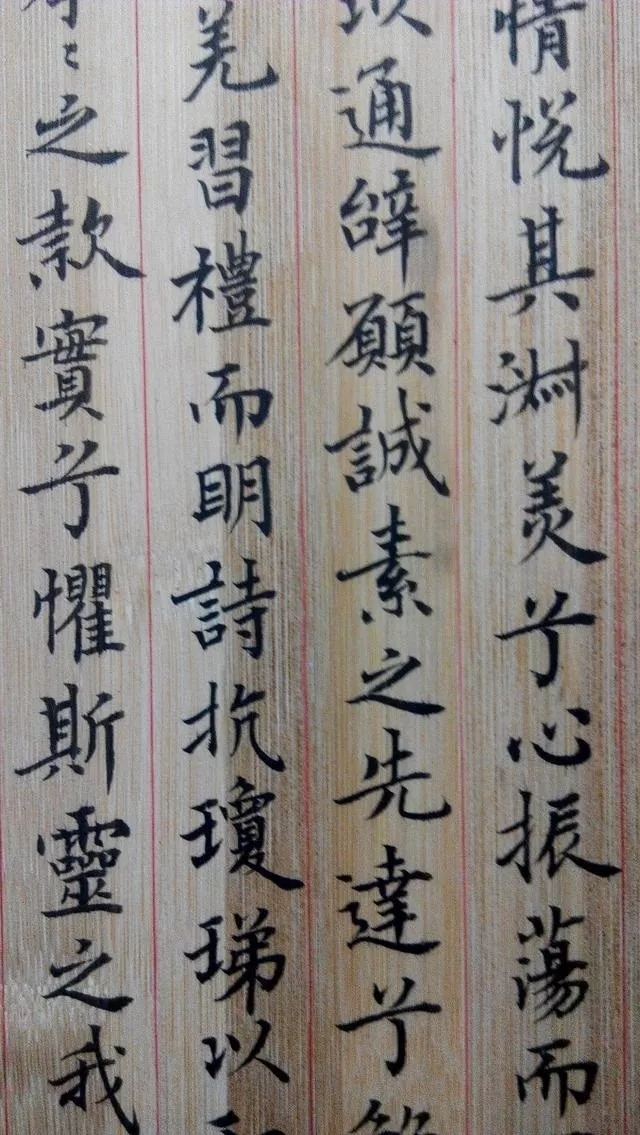 情悅其淑美兮心振蕩而
以通辝願誠素之先達兮
羌習禮而明詩抗瓊珶以
々之款實兮懼斯靈之我